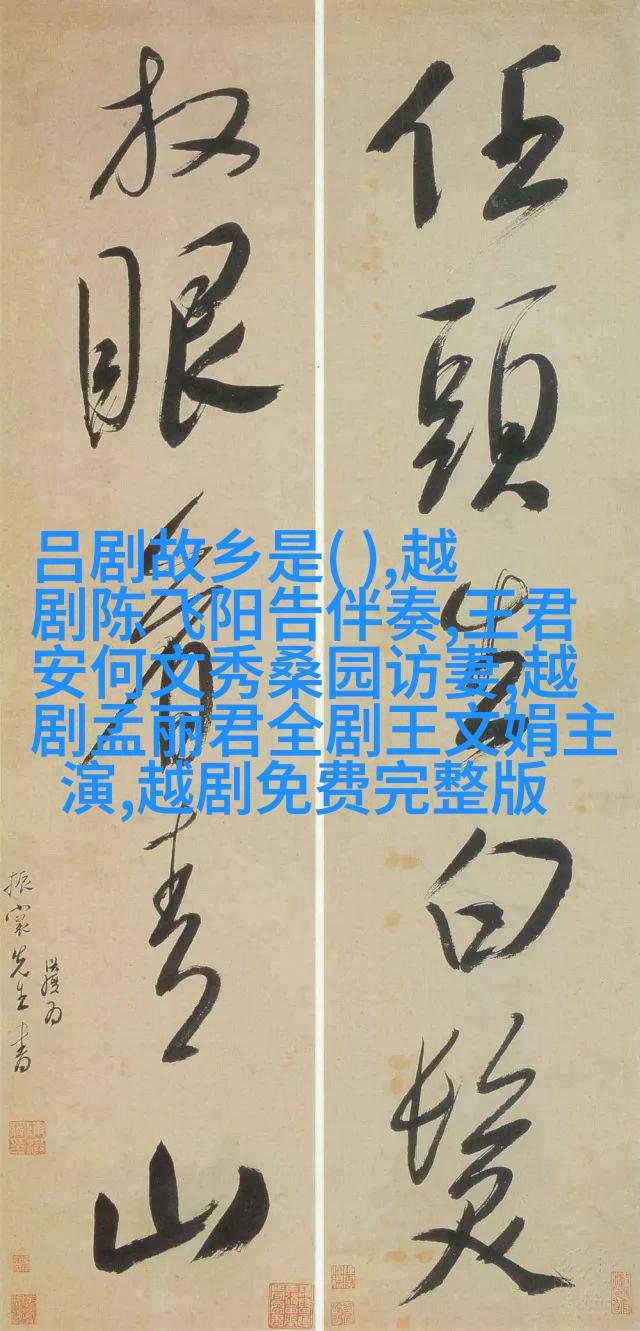 任頭生白髮
放眼看青山
振裳先生書
吕剧故乡是(),越
剧陈飞阳告伴奏,王君
安何文秀桑园访妻,越
剧孟丽君全剧王文娟主
演,越剧免费完整版